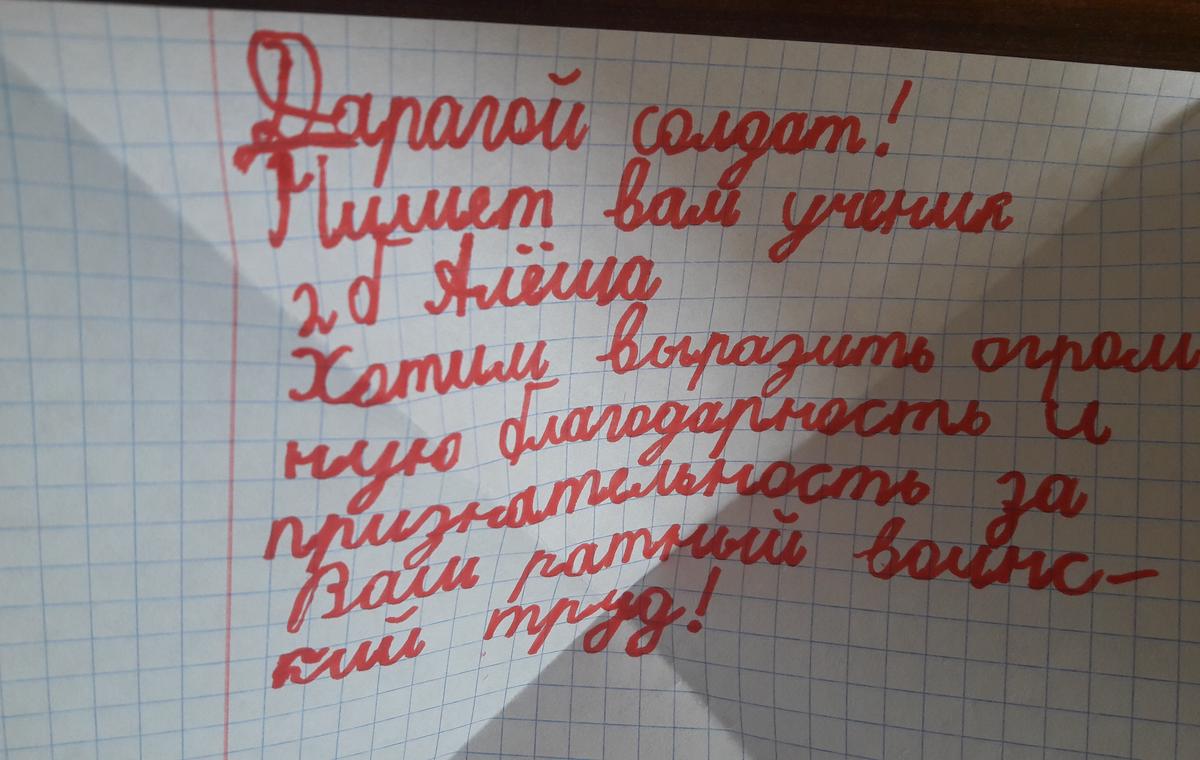 Дарагой солдат!
Пишет вам ученик
2 б Алёша
Хотим выразить огром
ную благодарность и
признательность за
Ваш ратный воинс-
кий труд!